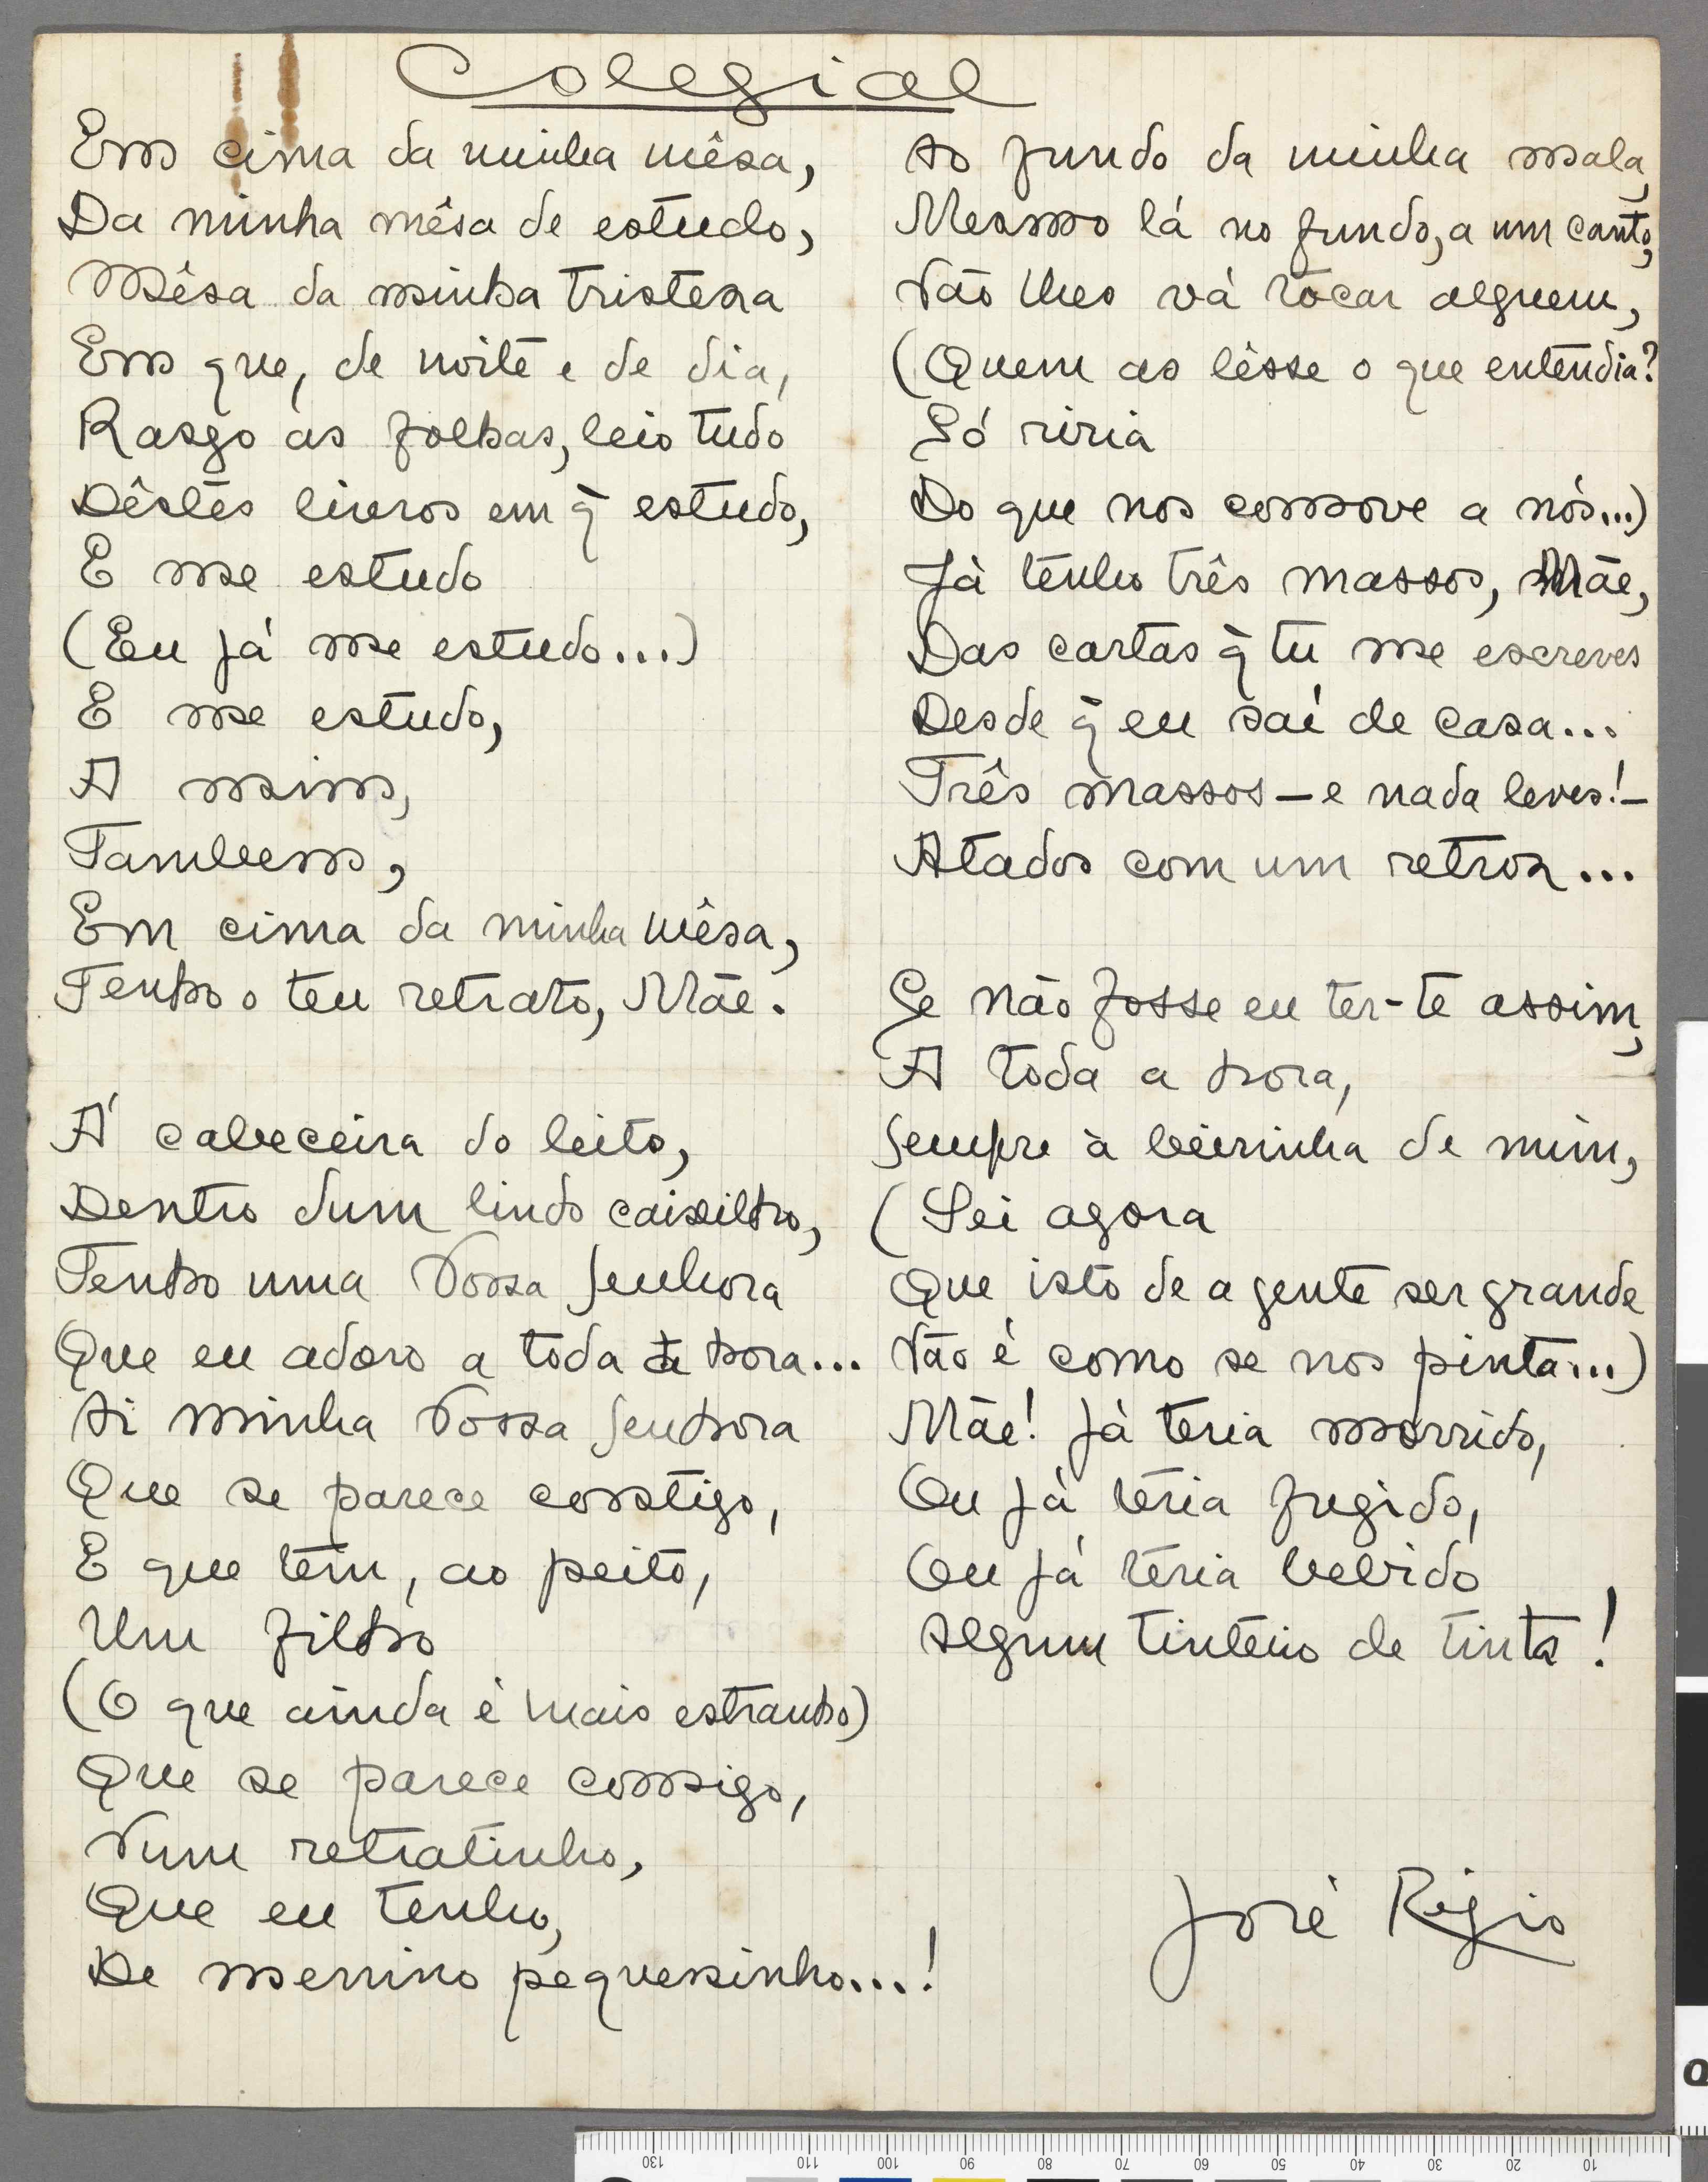 Colegial
Em cima da minha mêsa,
Da minha mêsa de estudo,
Mêsa da minha tristeza
Em que, de noite e de dia,
Rasgo as folhas, leio tudo
Dêstes livros em q̃ estudo,
E me estudo
(Eu já me estudo...)
E me estudo,
A mim,
Tambem,
Em cima da minha mêsa,
Tenho o teu retrato, Mãe.
Á cabeceira do leito,
Dentro dum lindo caixilho,
Tenho uma Nossa Senhora
Que eu adoro a toda a hora...
Ai minha Nossa Senhora
Que se parece contigo,
E que tem, ao peito,
Um filho
(O que ainda é mais estranho)
Que se parece comigo,
Num retratinho,
Que eu tenho,
De menino pequenino...!
Ao fundo da minha mala,
Mesmo lá no fundo, a um canto,
Não lhes vá tocar alguem,
(Quem as lêsse o que entendia?
Só riria
Do que nos comove a nós...)
Já tenho três massos, Mãe,
Das cartas q̃ tu me escreves
Desde q̃ eu saí de casa...
Três massos — e nada leves! —
Atados com um retroz...
Se não fosse eu ter-te assim,
A toda a hora,
Sempre à beirinha de mim,
(Sei agora
Que isto de a gente ser grande
Não é como se nos pinta...)
Mãe! já teria morrido,
Ou já teria fugido,
Ou já teria bebido
Algum tinteiro de tinta!
José Régio
130 110 100 90 80 70 60 50 40 30 20 10